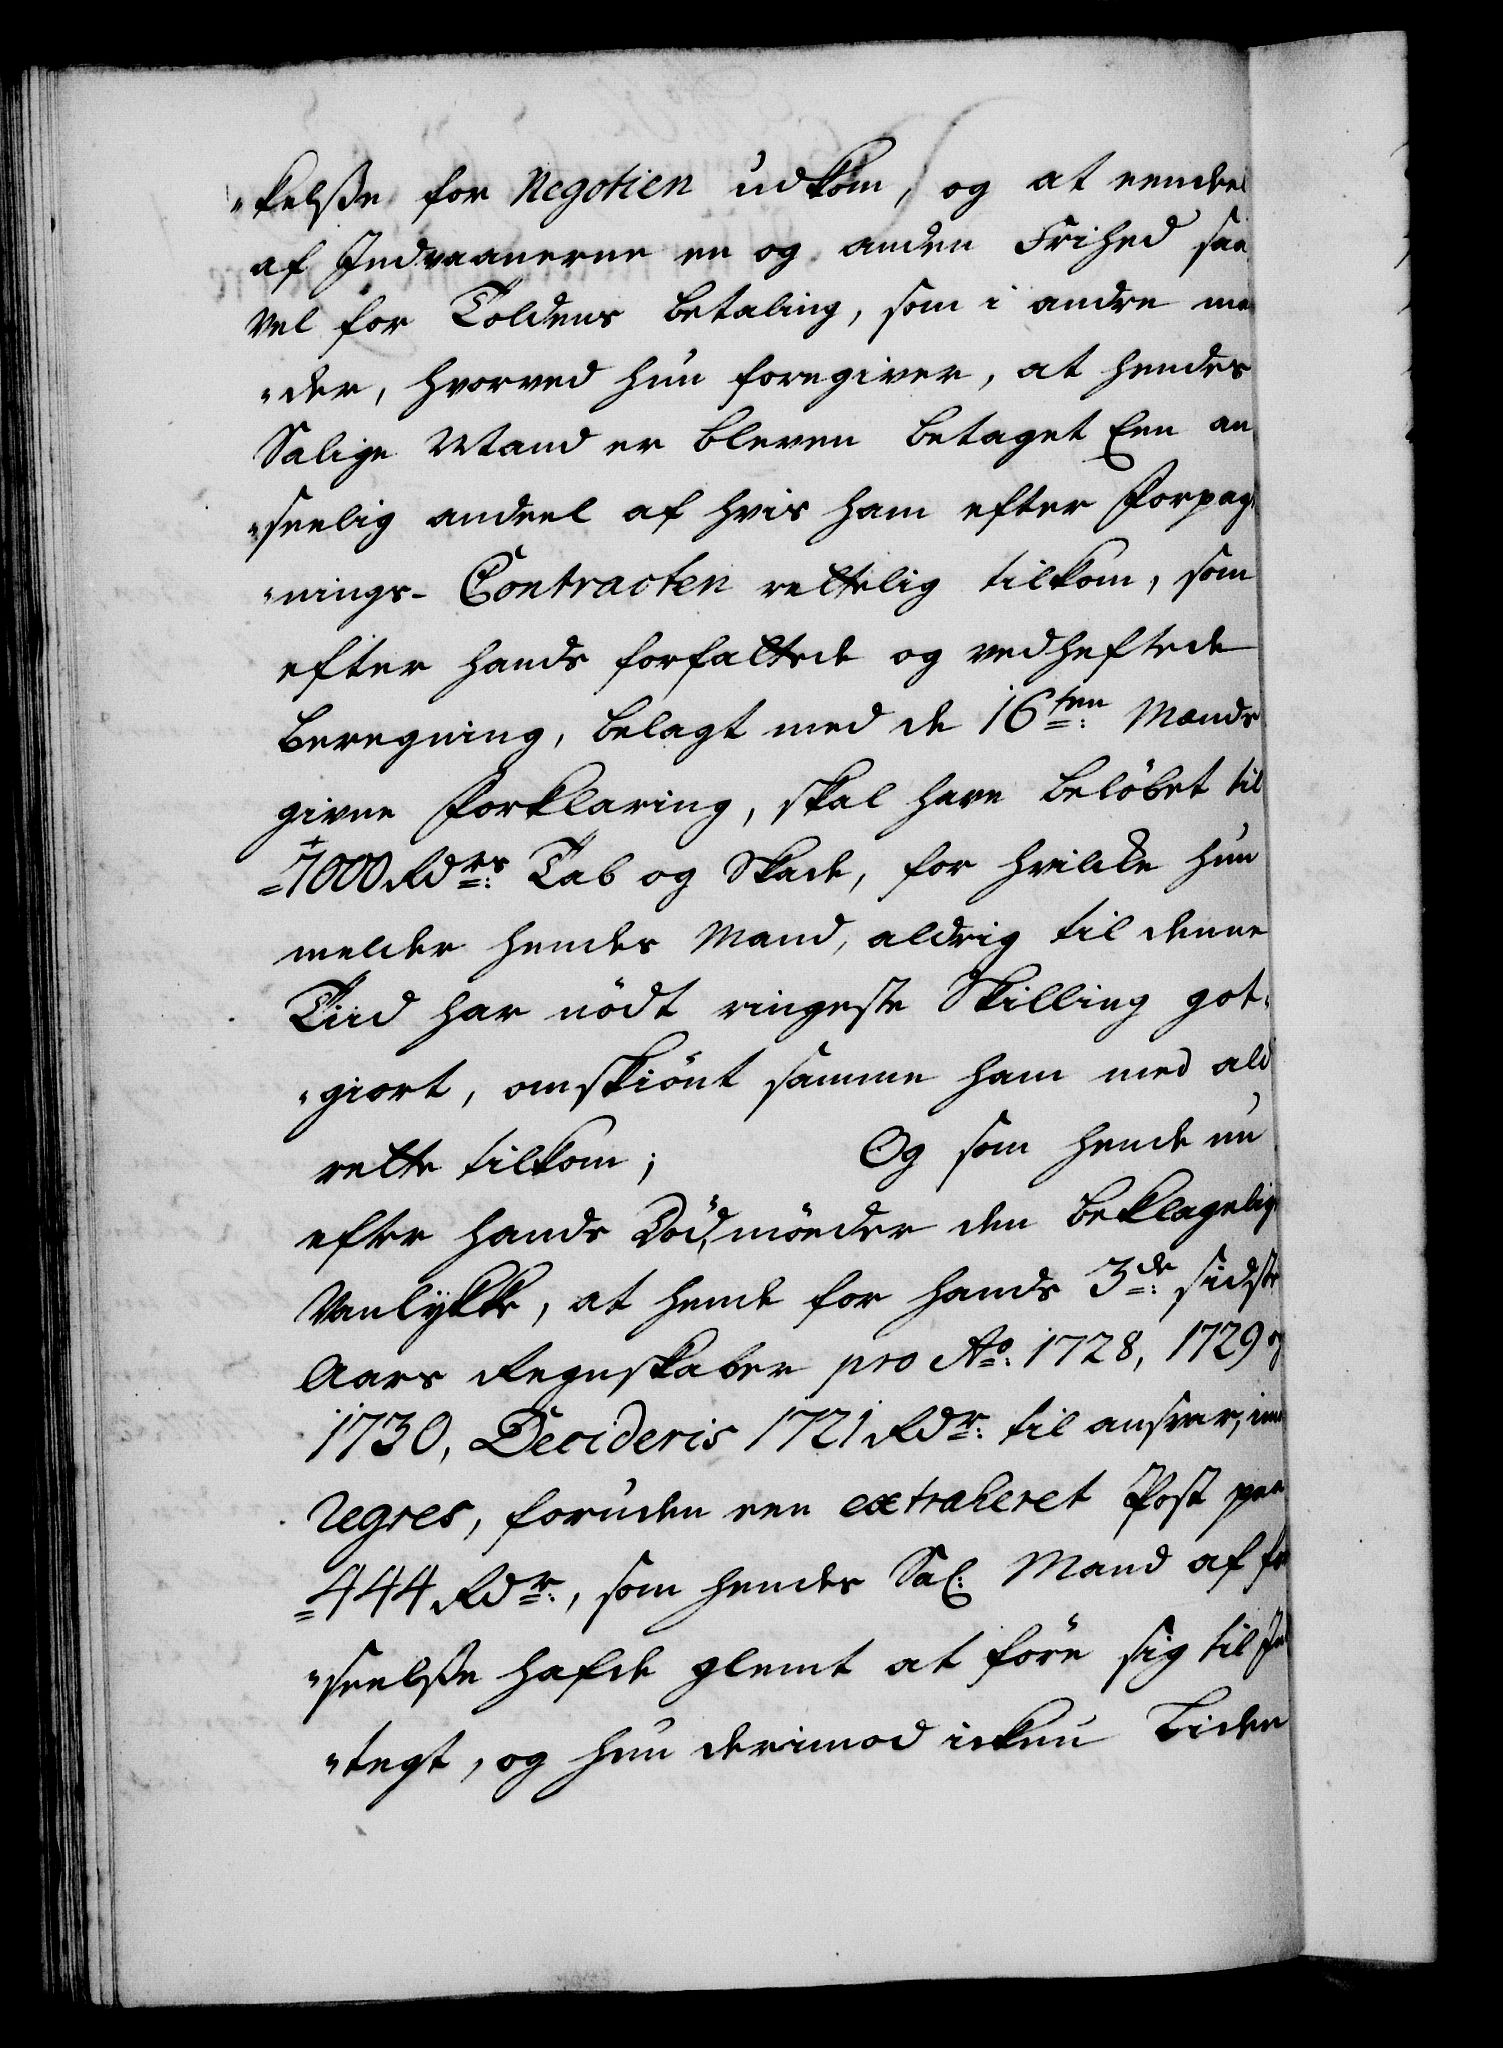 "kelße for Negotien udkom, og at eendeel
af Indvaanerne en og anden Frihed saa
vel for Toldens betaling, som i andre maa
"der, hvorved hun foregiver, at hendes
Salige Mand er bleven betaget Een an
"seelig andeel af hvis ham efter Forpagt
"nings- Contracten rettelig tilkom, som
efter hands forfattede og vedheftede
beregning, belagt med de 16ten: Mænds
givne Forklaring, skal have beløbet til
=7000 Rdrs: Tab og Skade, for hvilcke hun
melder hendes Mand, aldrig til denne
Tiid har nødt ringeste Skilling got=
"giort, omskiönt samme ham med all
rette tilkom; Og som hende nu
efter hands Död, möeder den beklagelig
Vanlykke, at hende for hands 3de: sidste
Aars Regnskaber pro Ao: 1728, 1729 og
1730, Decideris 1721 Rdr: til ansvar,
regres, foruden een extraheret Post paa
=444 Rdr:, som hendes Sal: Mand af for
"seelße hafde glemt at före sig til Ind
"tegt, og hun derimod ickun Liden